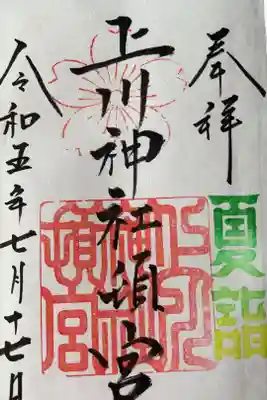 奉祥
夏詣
上川神社頓宮
上川神社頓宮
令和五年七月十七日